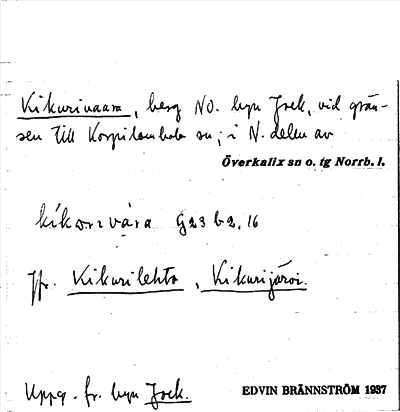 Kikurivaara, berg NO. byn Jock, vid grän-
sen till Korpilombolo sn, i N. delen av
Överkalix sn o. tg Norrb. l.
kikorrvára G23 b2, 16
Jfr. Kikurilehto, Kikurijärvi.
Uppg. fr. byn Jock.
EDVIN BRÄNNSTRÖM 1937